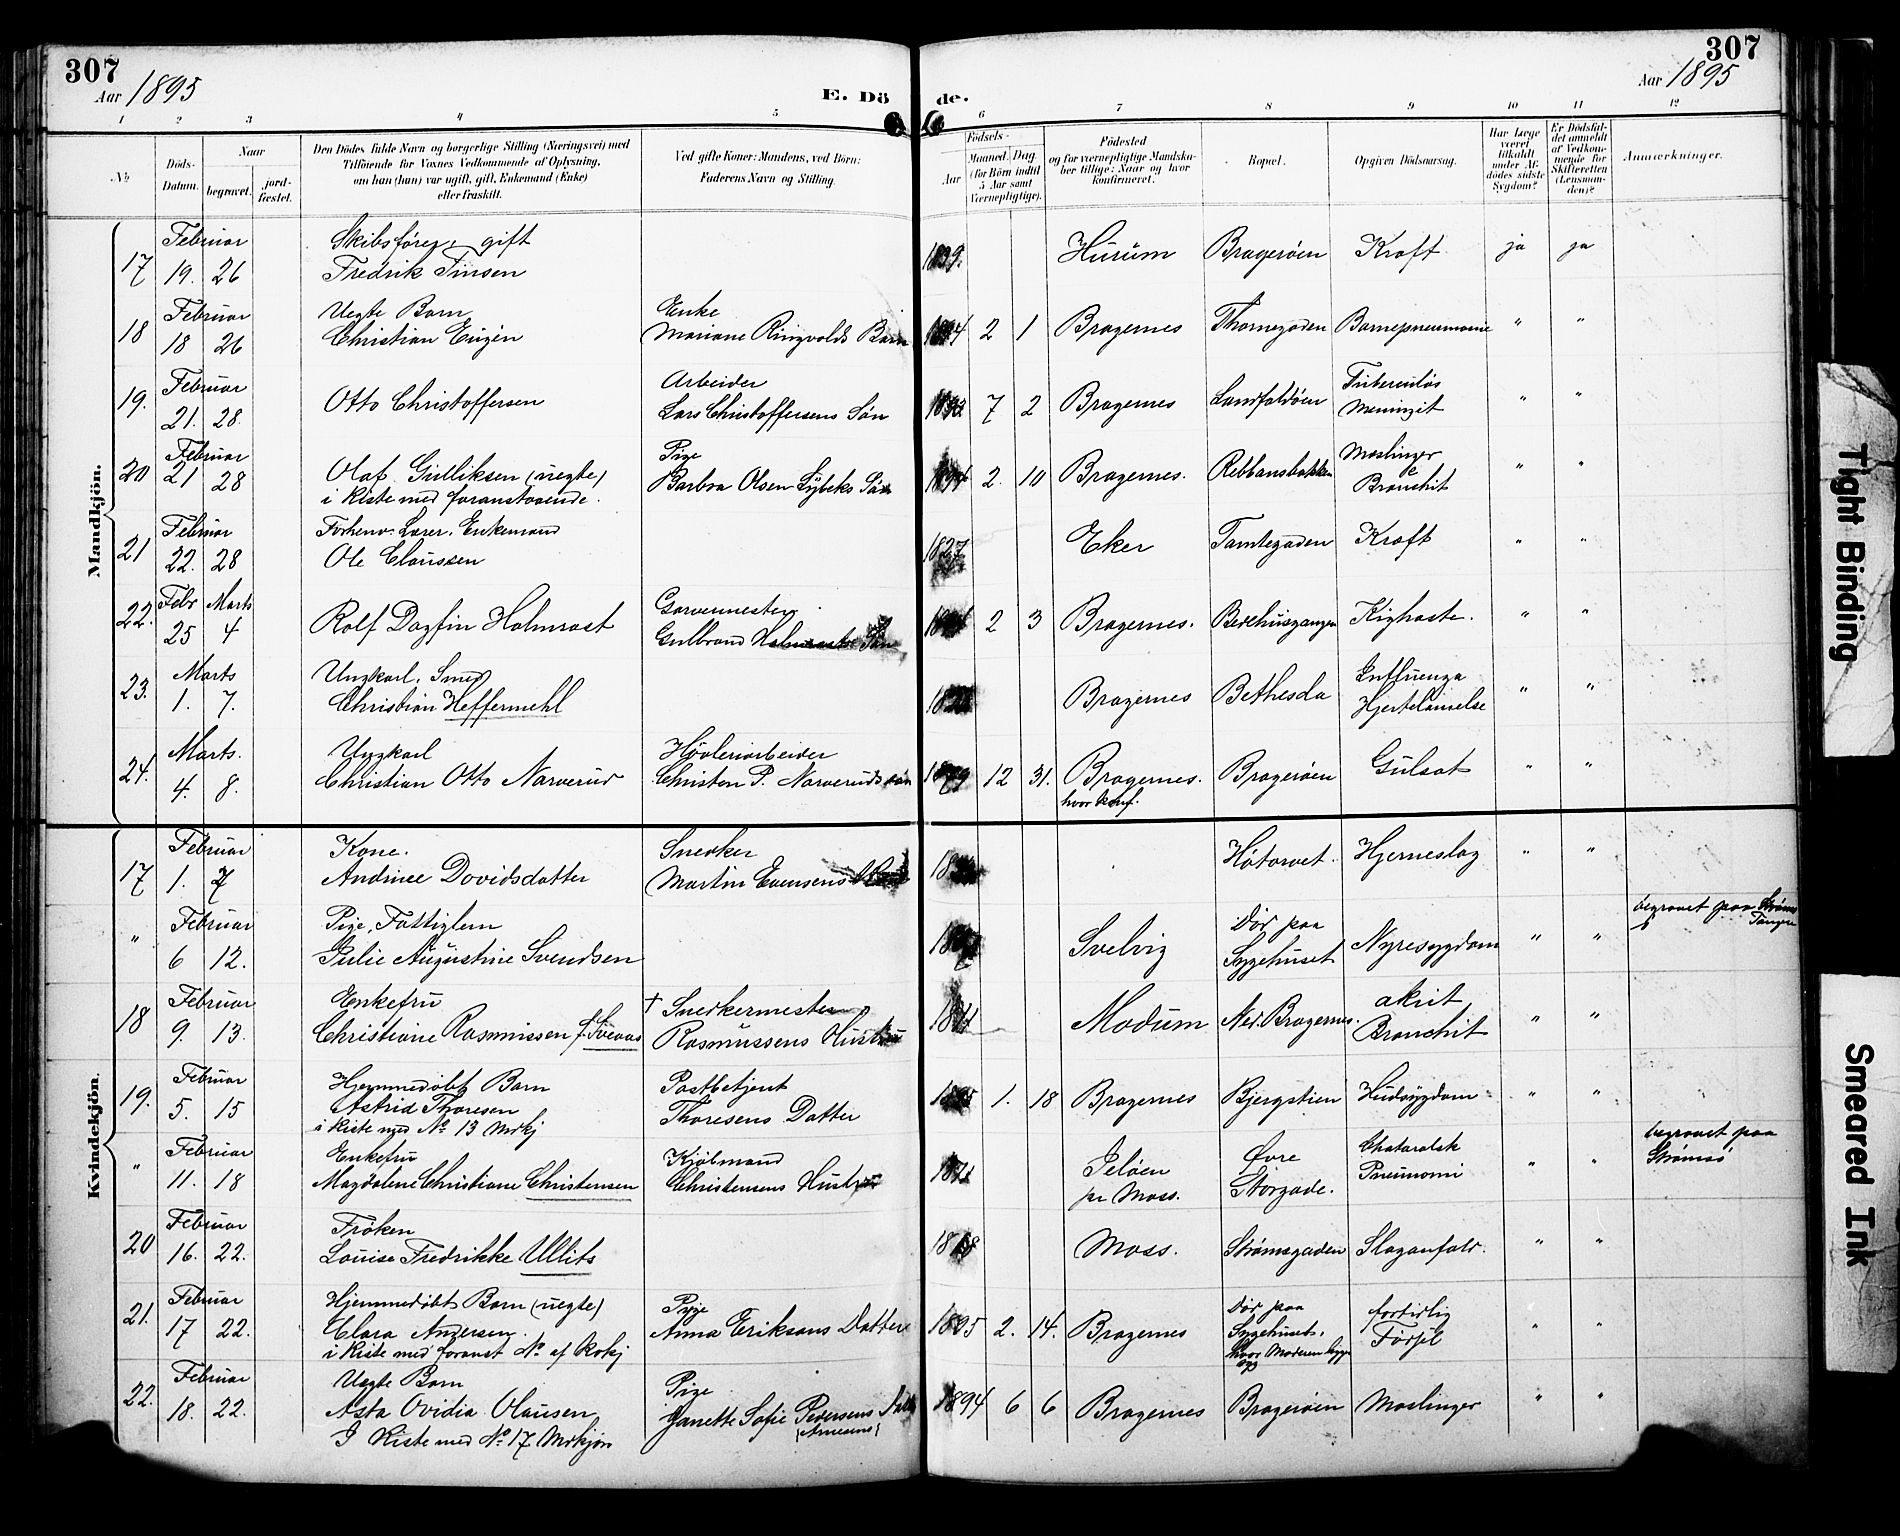 307
307
Aar 1895
E. Dö de.
Aar 1895
1 2 3 4 5 6 7 8 9 10 11 12
No
Döds-Datum.
Naar
begravet.
jord-fæstet.
Den Dödes fulde Navn og borgerlige Stilling (Næringsvei) med
Tilföiende for Voxnes Vedkommende af Oplysning,
om han (hun) var ugift, gift, Enkemand (Enke)
eller fraskilt.
Ved gifte Koner: Mandens, ved Börn:
Faderens Navn og Stilling.
Födsels-
Aar
Maaned. Dag.
(for Börn indtil
5 Aar samt
Værnepligtige).
Födested
og for værnepligtige Mandska-
ber tillige: Naar og hvor
konfirmeret.
Bopæl.
Opgiven Dödsaarsag.
Har Læge
været
tilkaldt
under Af-
dödes sidste
Sygdom?
Er Dödsfal-
det anmeldt
af Vedkom-
mende for
Skifteretten
(Lensman-
den)?
Anmærkninger.
Mandkjön.
Februar Skibsfører, gift
17 19. 26 Fredrik Tinsen 1839. Hurum Bragerøen Kræft ja ja
Februar Uegte Barn Enke
18 18 26 Christian Eugén Mariane Ringvolds Barn 1894 2 1 Bragernes Thornegaden Barnepneumonie " "
Februar Arbeider Tuberculøs
19. 21. 28. Otto Christoffersen Lars Christoffersens Søn 7 2 Bragernes Landfaldøen Meningit " "
Februar Pige Meslinger
20 21 28 Olaf Gulliksen (uegte) Barbra Olsen Lybeks Søn 1894 2. 10 Bragernes. Rebbansbakken & Bronchit " "
i Kiste med foranstaaende.
Februar Forhenv. Lærer, Enkemand
21 22. 28 Ole Claussen 1827 Eker Tomtegaden Kræft " "
Febr Marts Garvermester
22. 25 4 Rolf Dagfin Holmrast Gulbrand Holmrasts Søn 2 3 Bragernes. Berehusgangen Kighoste. " "
Marts Ungkarl, Smed Influenza
23. 1. 7. Christian Heffermehl Bragernes Bethesda Hjertelamelse " "
Marts. Ungkarl Høvleriarbeider
24. 4. 8. Christian Otto Narverud Christen P. Narveruds søn 1879 12 31. Bragernes. Bragerøen Gulsot " "
hvor konf.
Kvindekjön.
Februar Kone. Snedker
17 1. 7 Andrine Davidsdatter Martin Evensens Høtorvet. Hjerneslag " "
Februar Pige, Fattiglem Dør paa begravet paa Strøms
" 6 12. Julie Augustine Svendsen Svelvig Sygehuset Nyresygdom " " Tangen
Februar Enkefru † Snedkermester akut
18 9. 13. Christiane Rasmussen f. Sveaas Rasmussens Hustru Modum Ned. Bragernes. Bronchit " "
Februar Hjemmedøbt Barn Postbetjent
19. 5. 15 Astrid Thoresen Thoresens Datter 1895 1. 18 Bragernes Bjergstien Hudsygdom " "
i Kiste med No 13 Mdkj
Februar Enkefru Kjølmand Øvre Chataralsk begravet paa
" 11. 18 Magdalene Christiane Christensen Christensens Hustru Jeløen pr Moss. Storgade. Pneumoni " " Strømsø
Februar Frøken
20 16. 22. Louise Fredrikke Ullits 1818 Moss. Strømsgaden Slaganfald. " "
Februar Hjemmedøbt Barn (uegte) Pige Dør paa fortidlig
21. 17 22. Clara Andersen. Anna Eriksens Datter 1895 2. 14. Bragernes Sygehuset, Fødsel " "
i Kiste med foranst No af Kvkj hvor Moderen ligger syg
Februar Uegte Barn Pige
22. 18. 22. Asta Ovidia Olausen Janette Sofie Pedersens Datter 1894 6 6 Bragernes Bragerøen Meslinger " "
I Kiste med No 17 Mdkjøn (Arnesens)
Tight Binding
Smeared Ink